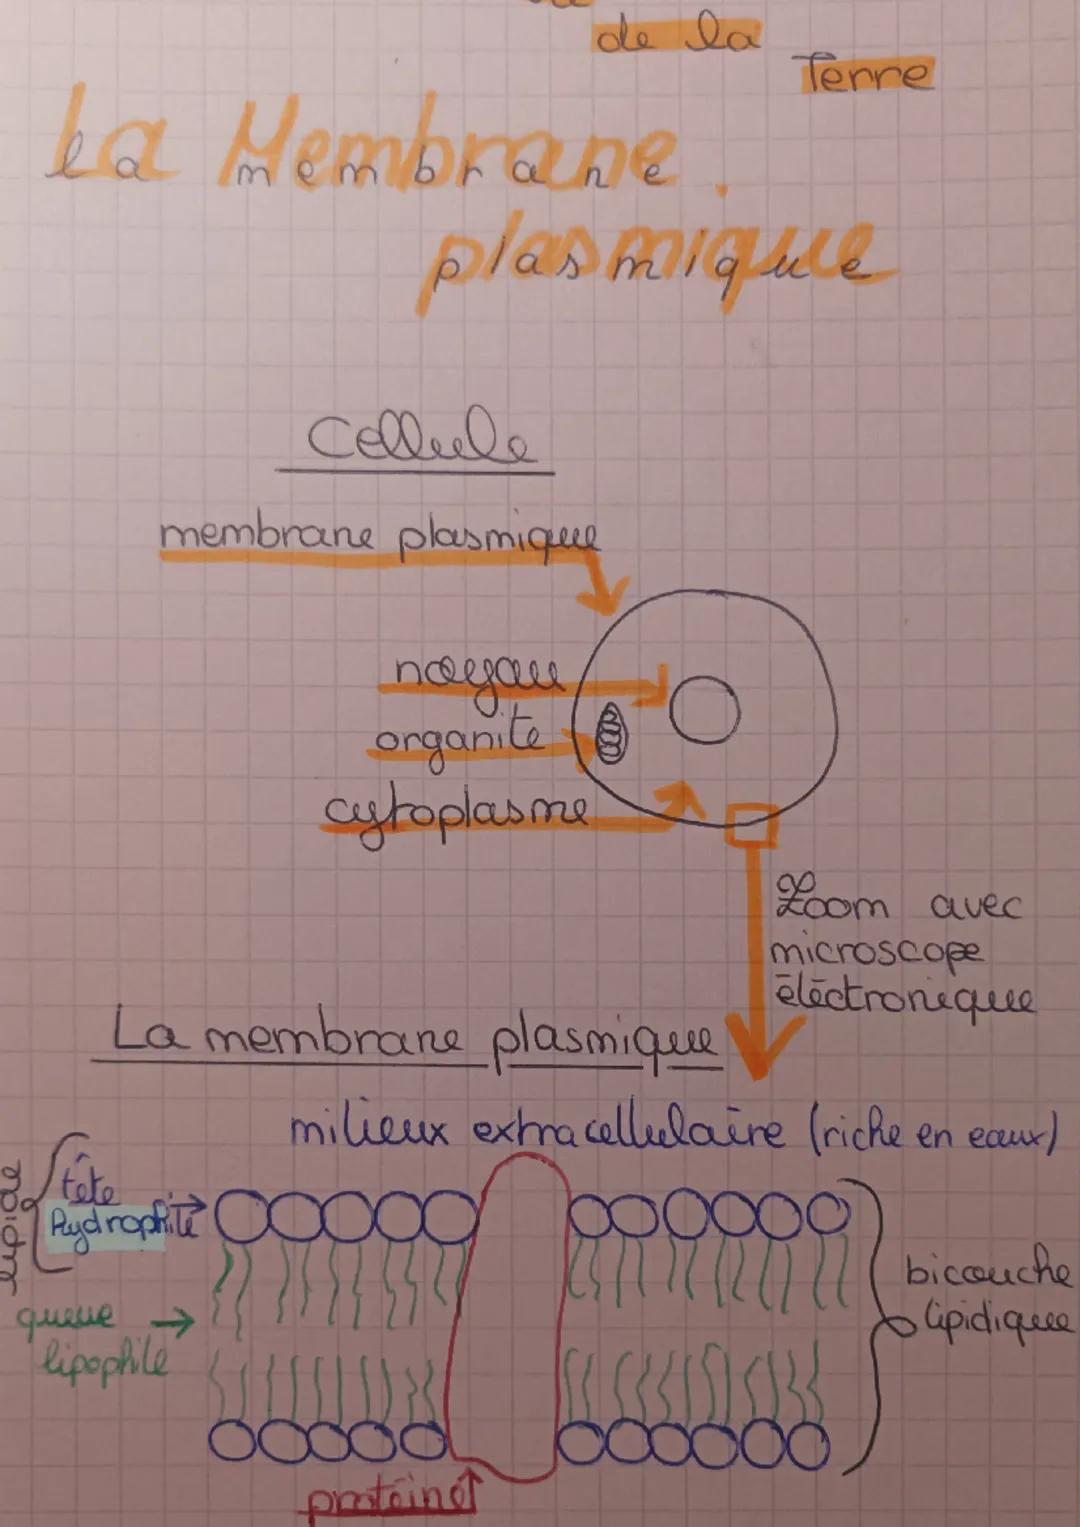 de la
Terre
La Membrane
plasmique
Cellule
membrane plasmique
noyau
organite
cytoplasme
Zoom avec
microscope
électronique
La membrane plasmique
milieux extracellulaire (riche en eaux)
lipide
tête
hydrophile
queue
lipophile
bicouche
lipidique
protéine